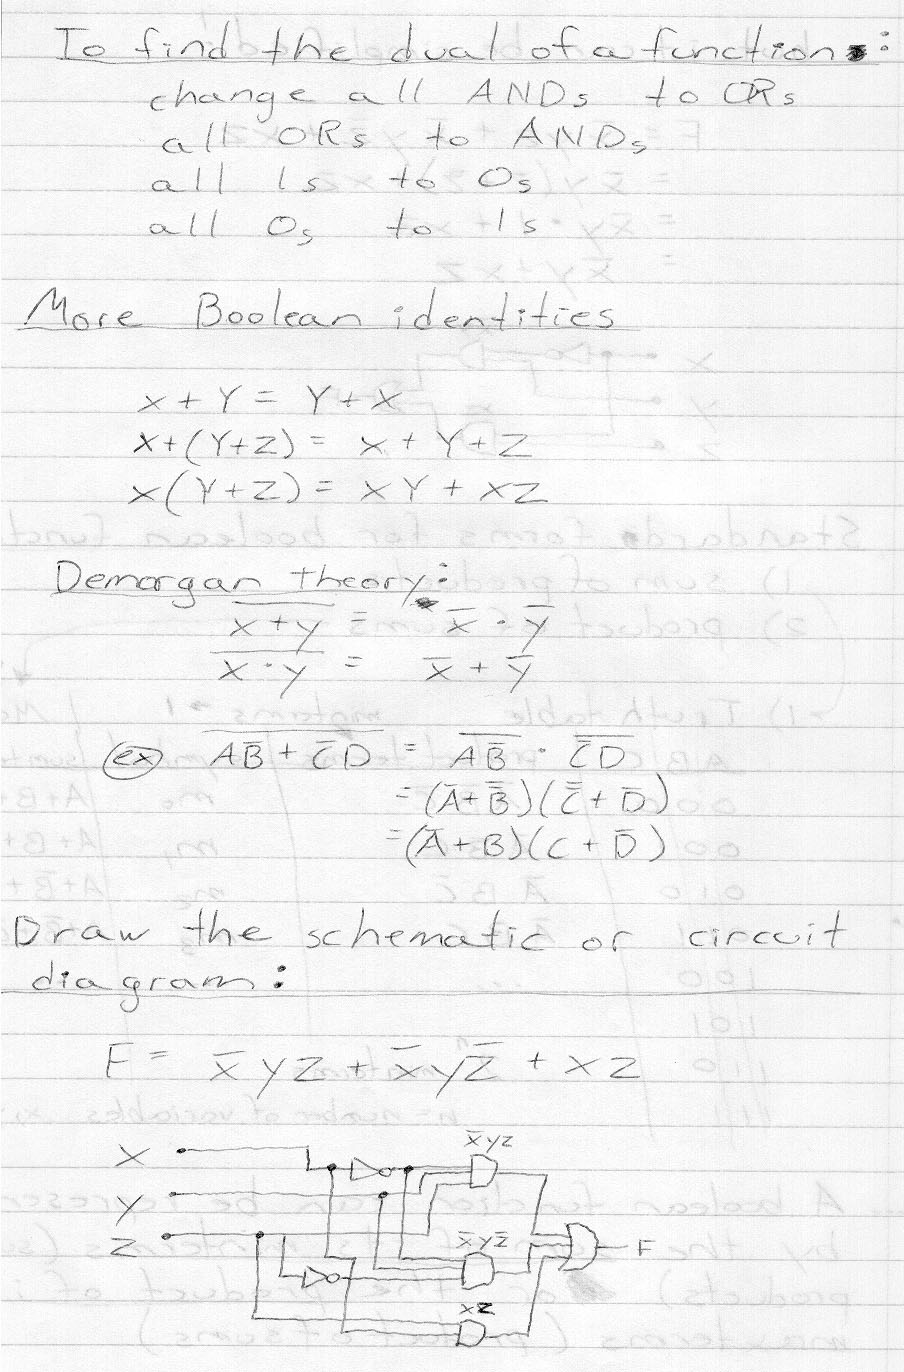 To find the dual of a function:
change all ANDs to ORs
all ORs to ANDs
all 1s to 0s
all 0s to 1s
More Boolean identities
x + Y = Y + X
X+(Y+Z) = X + Y + Z
X(Y+Z) = XY + XZ
Demorgan theory:
x̅+̅y̅ = x̅ · y̅
x̅·̅y̅ = x̅ + y̅
ex A̅B̅̅+̅C̅̅D̅ = A̅B̅̅ · C̅̅D̅
= (A̅+B̅̅)(C̅̅+D̅)
= (A̅+B)(C+D̅)
Draw the schematic or circuit
diagram:
F = x̅yz + x̅yz̅ + xz
x̅yz
X
Y
Z
x̅yz̅
F
xz